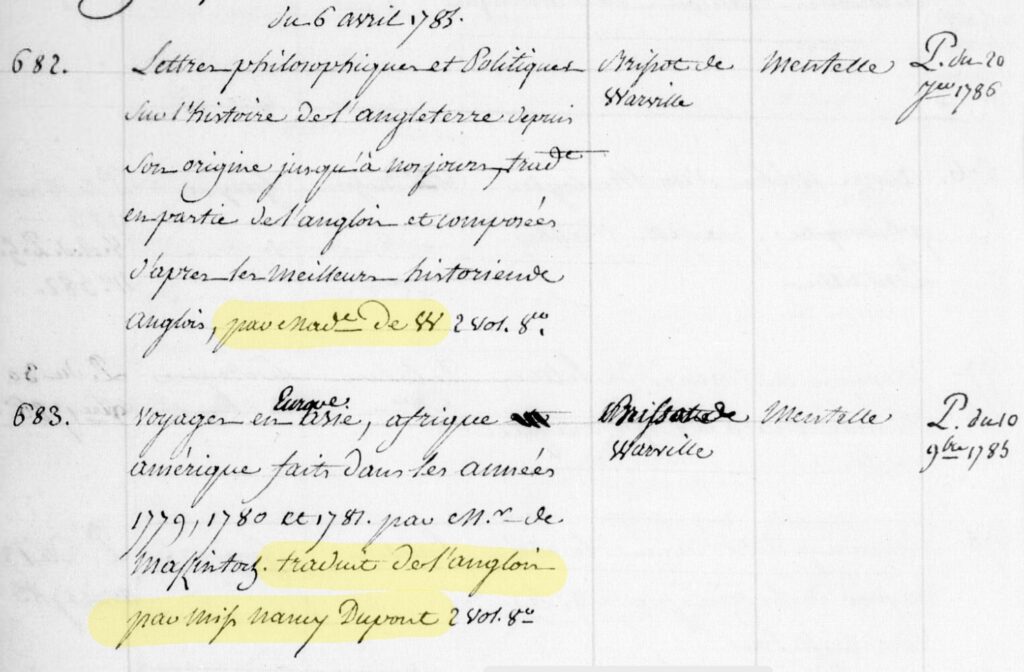 du 6 avril 1785.
682. Lettres philosophiques et Politiques Brissot de Mentelle P. du 20
sur l'histoire de l'angleterre depuis Warville 7bre 1786
son origine jusqu'à nos jours, trad.te
en partie de l'anglois et composées
d'apres les meilleurs historiens de
anglois, par Made. de W 2 vol. 8vo.
683. Voyages en Europe Asie, afrique Brissot de Mentelle P. du 10
amérique faits dans les années Warville 9bre 1785
1779, 1780 et 1781. par M.r de
Makintosh. traduit de l'anglois
par Miss Nancy Dupont 2 vol. 8vo